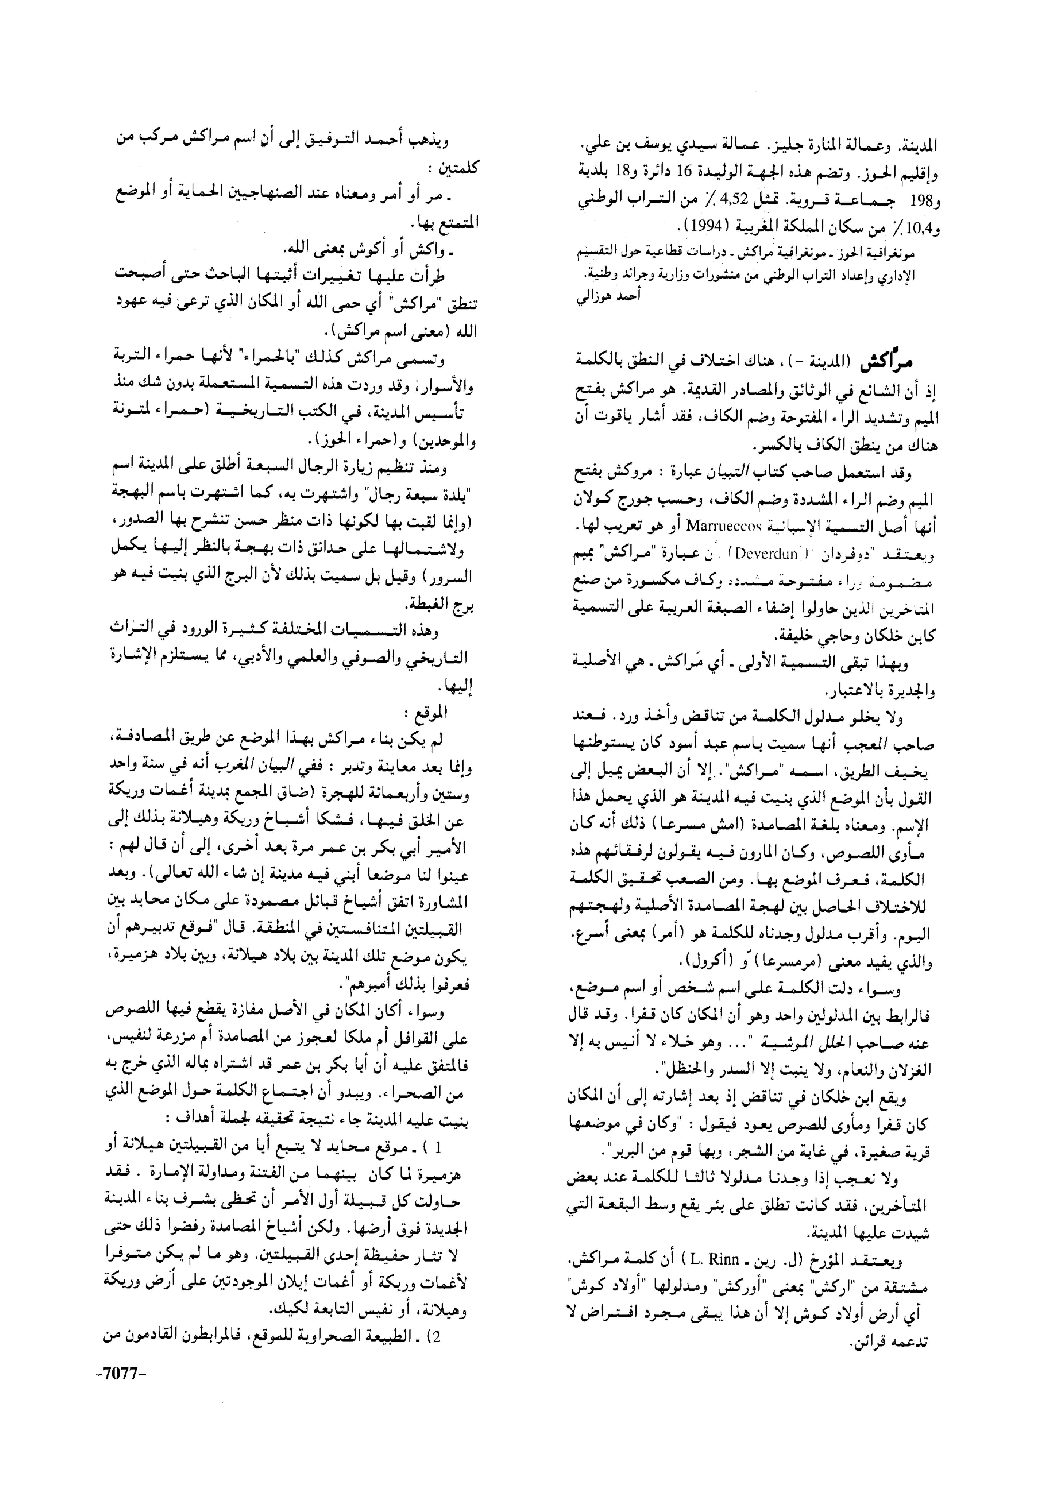 المدينة. وعمالة المنارة جليز. عمالة سيدي يوسف بن علي.
وإقليم الحوز. وتضم هذه الجهة الوليدة 16 دائرة و18 بلدية
و198 جماعة قروية. تمثل 4,52 ٪ من التراب الوطني
و10,4٪ من سكان المملكة المغربية (1994).
مونغرافية الحوز ـ مونغرافية مراكش ـ دراسات قطاعية حول التقسيم
الإداري وإعداد التراب الوطني من منشورات وزارية وجرائد وطنية.
أحمد هوزالي
مرّاكش (المدينة -)، هناك اختلاف في النطق بالكلمة
إذ أن الشائع في الوثائق والمصادر القديمة. هو مراكش بفتح
الميم وتشديد الراء المفتوحة وضم الكاف، فقد أشار ياقوت أن
هناك من ينطق الكاف بالكسر.
وقد استعمل صاحب كتاب التبيان عبارة : مروكش بفتح
الميم وضم الراء المشددة وضم الكاف، وحسب جورج كولان
أنها أصل التسمية الإسبانية Marruecos أو هو تعريب لها.
ويعتقد "دوفردان" (Deverdun) أن عبارة "مراكش" بميم
مضمومة وراء مفتوحة مشددة وكاف مكسورة من صنع
المتأخرين الذين حاولوا إضفاء الصبغة العربية على التسمية
كابن خلكان وحاجي خليفة.
وبهذا تبقى التسمية الأولى ـ أي مَراكش ـ هي الأصلية
والجديرة بالاعتبار.
ولا يخلو مدلول الكلمة من تناقض وأخذ ورد. فعند
صاحب المعجب أنها سميت باسم عبد أسود كان يستوطنها
يخيف الطريق، اسمه "مراكش". إلا أن البعض يميل إلى
القول بأن الموضع الذي بنيت فيه المدينة هو الذي يحمل هذا
الإسم. ومعناه بلغة المصامدة (امش مسرعا) ذلك أنه كان
مأوى اللصوص، وكان المارون فيه يقولون لرفقائهم هذه
الكلمة، فعرف الموضع بها. ومن الصعب تحقيق الكلمة
للاختلاف الحاصل بين لهجة المصامدة الأصلية ولهجتهم
اليوم. وأقرب مدلول وجدناه للكلمة هو (أمر) بمعنى أسرع.
والذي يفيد معنى (مرمسرعا) أو (أكرول).
وسواء دلت الكلمة على اسم شخص أو اسم موضع،
فالرابط بين المدلولين واحد وهو أن المكان كان قفرا. وقد قال
عنه صاحب الحلل الموشية "... وهو خلاء لا أنيس به إلا
الغزلان والنعام، ولا ينبت إلا السدر والحنظل".
ويقع ابن خلكان في تناقض إذ بعد إشارته إلى أن المكان
كان قفرا ومأوى للصوص يعود فيقول : "وكان في موضعها
قرية صغيرة، في غابة من الشجر، وبها قوم من البربر".
ولا نعجب إذا وجدنا مدلولا ثالثا للكلمة عند بعض
المتأخرين، فقد كانت تطلق على بئر يقع وسط البقعة التي
شيدت عليها المدينة.
ويعتقد المؤرخ (ل. رين ـ L. Rinn) أن كلمة مراكش،
مشتقة من "اركش" بمعنى "أوركش" ومدلولها "أولاد كوش"
أي أرض أولاد كوش إلا أن هذا يبقى مجرد افتراض لا
تدعمه قرائن.
ويذهب أحمد التوفيق إلى أن اسم مراكش مركب من
كلمتين :
ـ مر أو أمر ومعناه عند الصنهاجيين الحماية أو الموضع
المتمتع بها.
ـ واكش أو أكوش بمعنى الله.
طرأت عليها تغييرات أثبتها الباحث حتى أصبحت
تنطق "مراكش" أي حمى الله أو المكان الذي ترعى فيه عهود
الله (معنى اسم مراكش).
وتسمى مراكش كذلك "بالحمراء" لأنها حمراء التربة
والأسوار، وقد وردت هذه التسمية المستعملة بدون شك منذ
تأسيس المدينة، في الكتب التاريخية (حمراء لمتونة
والموحدين) و(حمراء الحوز).
ومنذ تنظيم زيارة الرجال السبعة أطلق على المدينة اسم
"بلدة سبعة رجال" واشتهرت به، كما اشتهرت باسم البهجة
(وإنما لقبت بها لكونها ذات منظر حسن تنشرح بها الصدور،
ولاشتمالها على حدائق ذات بهجة بالنظر إليها يكمل
السرور) وقيل بل سميت بذلك لأن البرج الذي بنيت فيه هو
برج الغبطة.
وهذه التسميات المختلفة كثيرة الورود في التراث
التاريخي والصوفي والعلمي والأدبي، مما يستلزم الإشارة
إليها.
الموقع :
لم يكن بناء مراكش بهذا الموضع عن طريق المصادفة،
وإنما بعد معاينة وتدبر : ففي البيان المغرب أنه في سنة واحد
وستين وأربعمائة للهجرة (ضاق المجمع بمدينة أغمات وريكة
عن الخلق فيها، فشكا أشياخ وريكة وهيلانة بذلك إلى
الأمير أبي بكر بن عمر مرة بعد أخرى، إلى أن قال لهم :
عينوا لنا موضعا أبني فيه مدينة إن شاء الله تعالى). وبعد
المشاورة اتفق أشياخ قبائل مصمودة على مكان محايد بين
القبيلتين المتنافستين في المنطقة. قال "فوقع تدبيرهم أن
يكون موضع تلك المدينة بين بلاد هيلانة، وبين بلاد هزميرة،
فعرفوا بذلك أميرهم".
وسواء أكان المكان في الأصل مفازة يقطع فيها اللصوص
على القوافل أم ملكا لعجوز من المصامدة أم مزرعة لنفيس،
فالمتفق عليه أن أبا بكر بن عمر قد اشتراه بماله الذي خرج به
من الصحراء. ويبدو أن اجتماع الكلمة حول الموضع الذي
بنيت عليه المدينة جاء نتيجة تحقيقه لجملة أهداف :
1) ـ موقع محايد لا يتبع أيا من القبيلتين هيلانة أو
هزميرة لما كان بينهما من الفتنة ومداولة الإمارة . فقد
حاولت كل قبيلة أول الأمر أن تحظى بشرف بناء المدينة
الجديدة فوق أرضها. ولكن أشياخ المصامدة رفضوا ذلك حتى
لا تثار حفيظة إحدى القبيلتين. وهو ما لم يكن متوفرا
لأغمات وريكة أو أغمات إيلان الموجودتين على أرض وريكة
وهيلانة، أو نفيس التابعة لكيك.
2) ـ الطبيعة الصحراوية للموقع، فالمرابطون القادمون من
-7077-